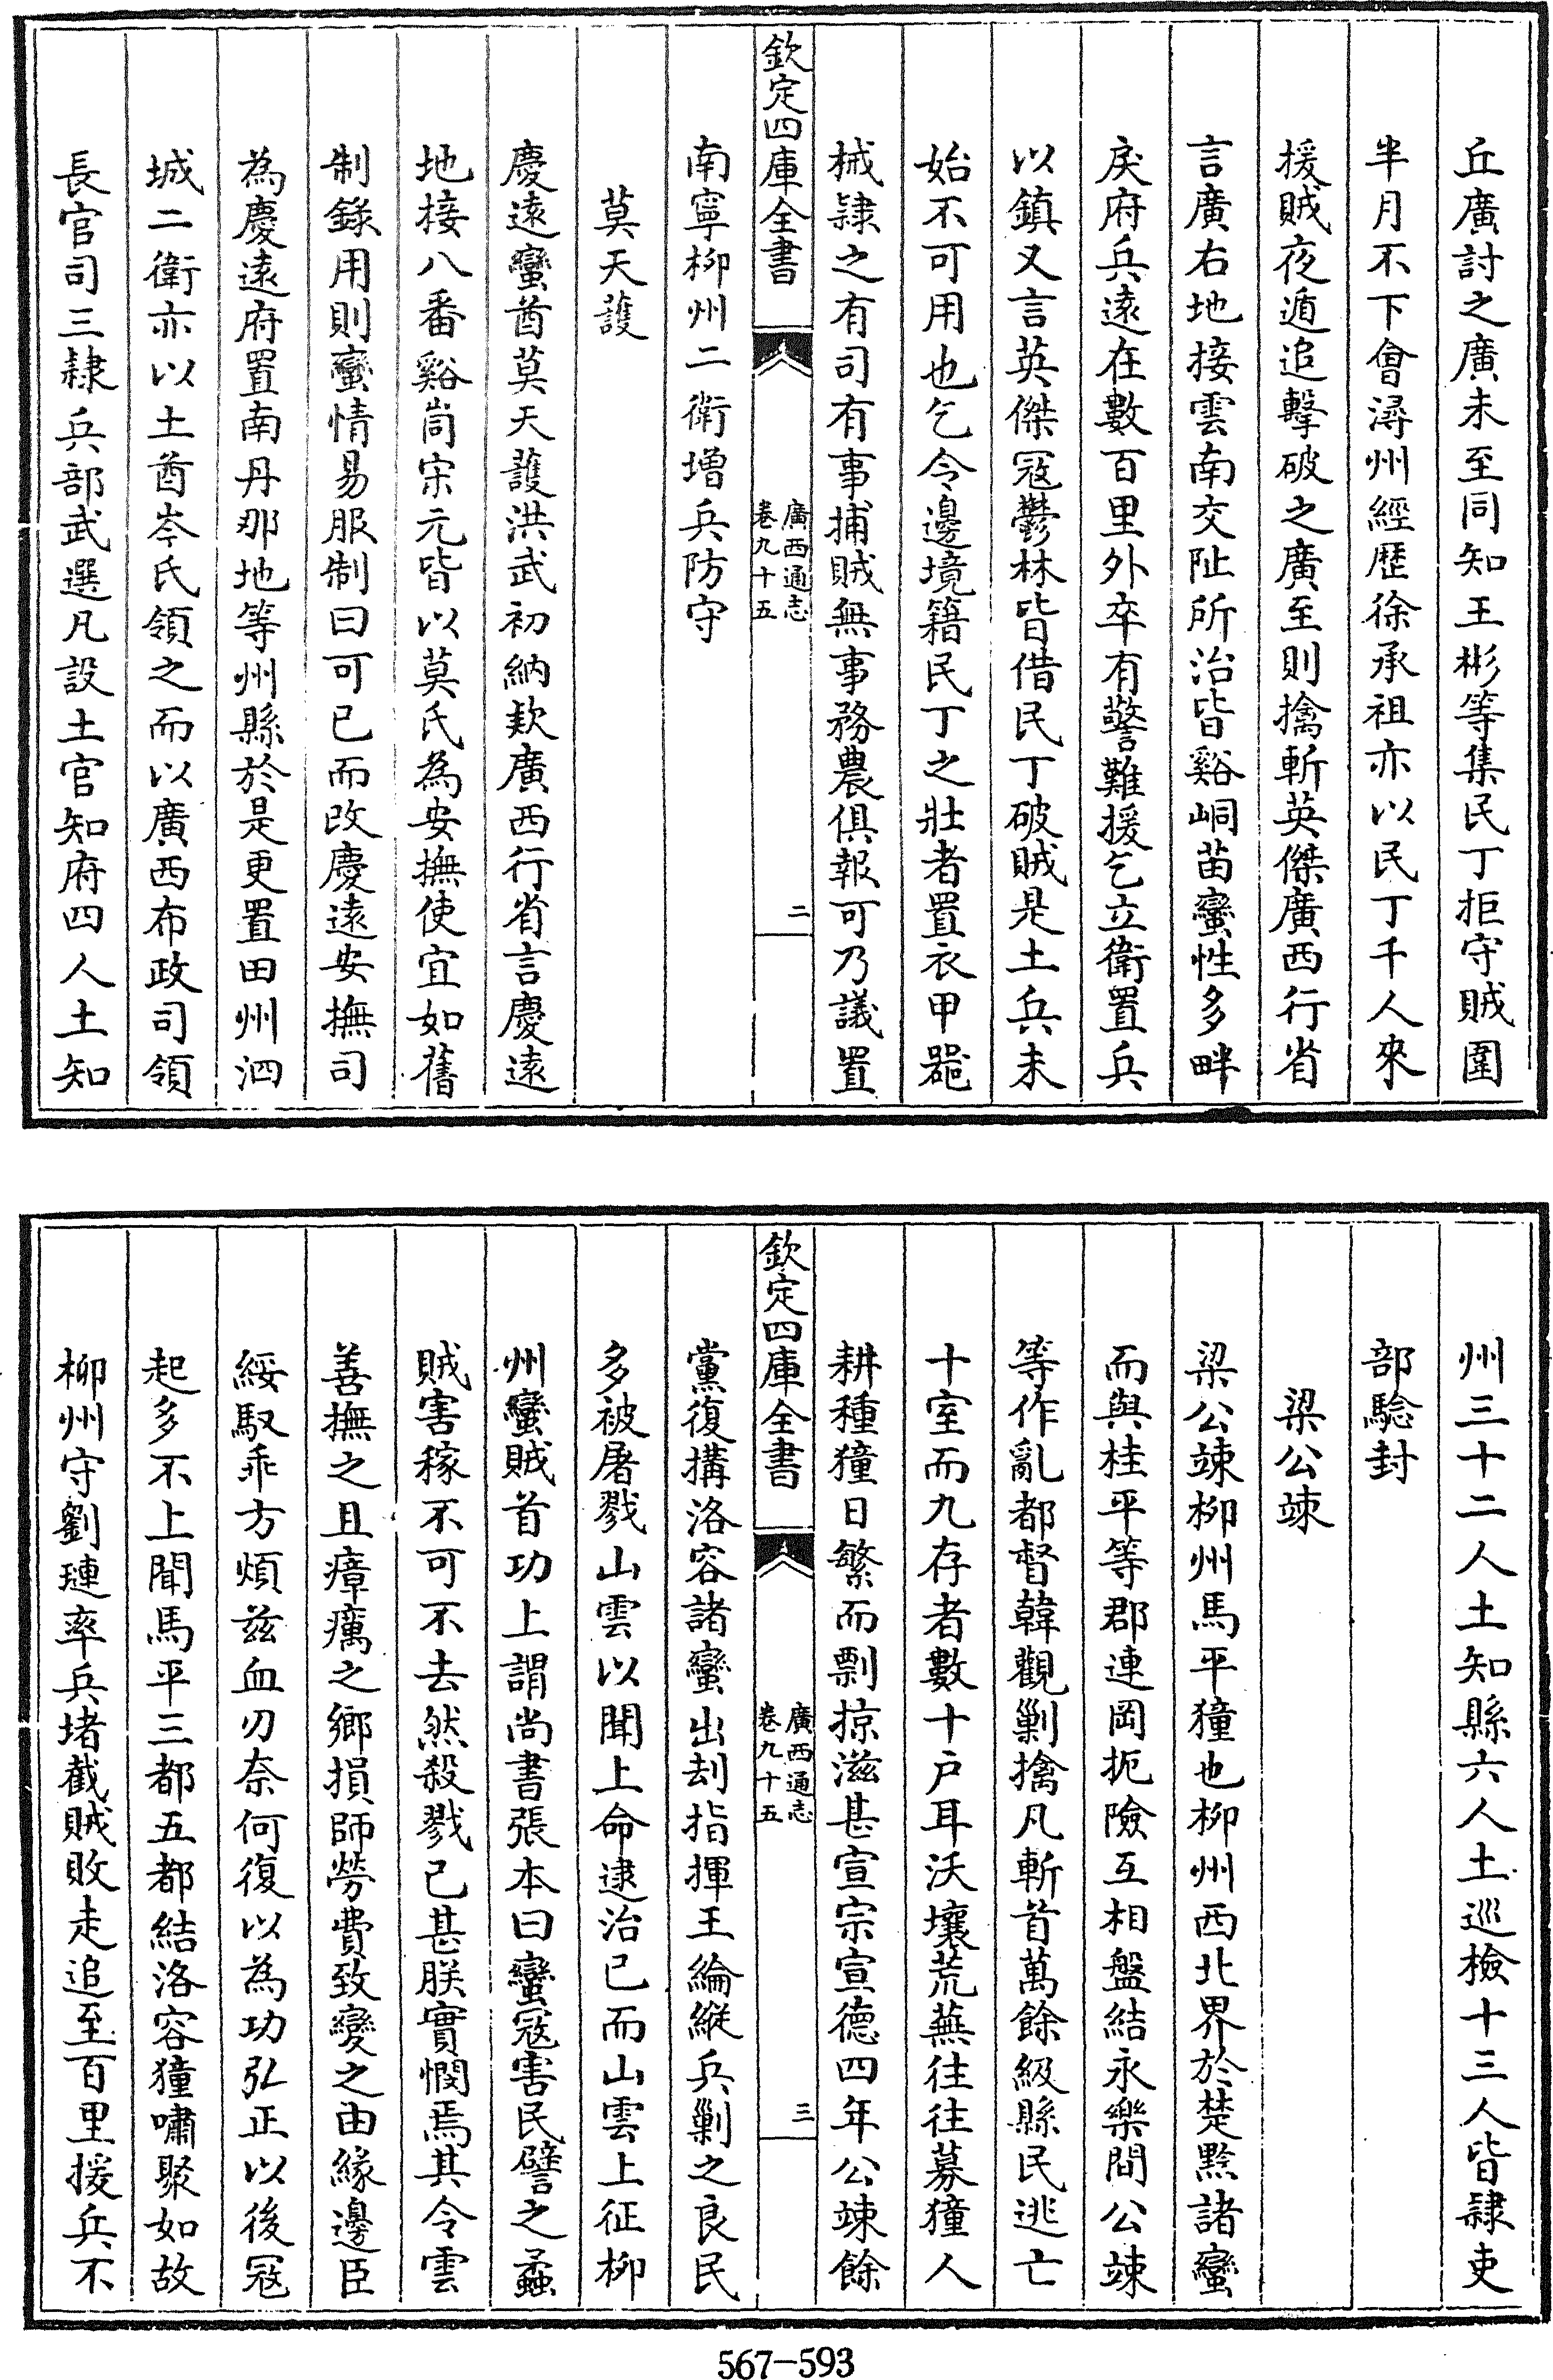 丘廣討之廣未至同知王彬等集民丁拒守賊圍
半月不下會潯州經歷徐承祖亦以民丁千人來
援賊夜遁追擊破之廣至則擒斬英傑廣西行省
言廣右地接雲南交阯所治皆谿峒苗蠻性多畔
戾府兵遠在數百里外卒有警難援乞立衛置兵
以鎮又言英傑冦鬱林皆借民丁破賊是土兵未
始不可用也乞令邊境籍民丁之壯者置衣甲噐
械隷之有司有事捕賊無事務農俱報可乃議置
欽定四庫全書
廣西通志
卷九十五
二
南寧柳州二衛增兵防守
莫天護
慶遠蠻酋莫天護洪武初納欵廣西行省言慶遠
地接八番谿峝宋元皆以莫氏為安撫使宜如舊
制錄用則蠻情易服制曰可已而改慶遠安撫司
為慶遠府置南丹那地等州縣於是更置田州泗
城二衛亦以土酋岑氏領之而以廣西布政司領
長官司三隷兵部武選凡設土官知府四人土知
州三十二人土知縣六人土巡檢十三人皆隷吏
部驗封
梁公竦
梁公竦柳州馬平獞也柳州西北界於楚黔諸蠻
而與桂平等郡連岡扼險互相盤結永樂間公竦
等作亂都督韓觀剿擒凡斬首萬餘級縣民逃亡
十室而九存者數十户耳沃壤荒蕪往往募獞人
耕種獞日繁而剽掠滋甚宣宗宣德四年公竦餘
欽定四庫全書
廣西通志
卷九十五
三
黨復搆洛容諸蠻出刦指揮王綸縱兵剿之良民
多被屠戮山雲以聞上命逮治已而山雲上征柳
州蠻賊首功上謂尚書張本曰蠻冦害民譬之蟊
賊害稼不可不去然殺戮已甚朕實憫焉其令雲
善撫之且瘴癘之鄉損師勞費致變之由緣邊臣
綏馭乖方煩兹血刃奈何復以為功弘正以後冦
起多不上聞馬平三都五都結洛容獞嘯聚如故
柳州守劉璉率兵堵截賊敗走追至百里援兵不
567-593